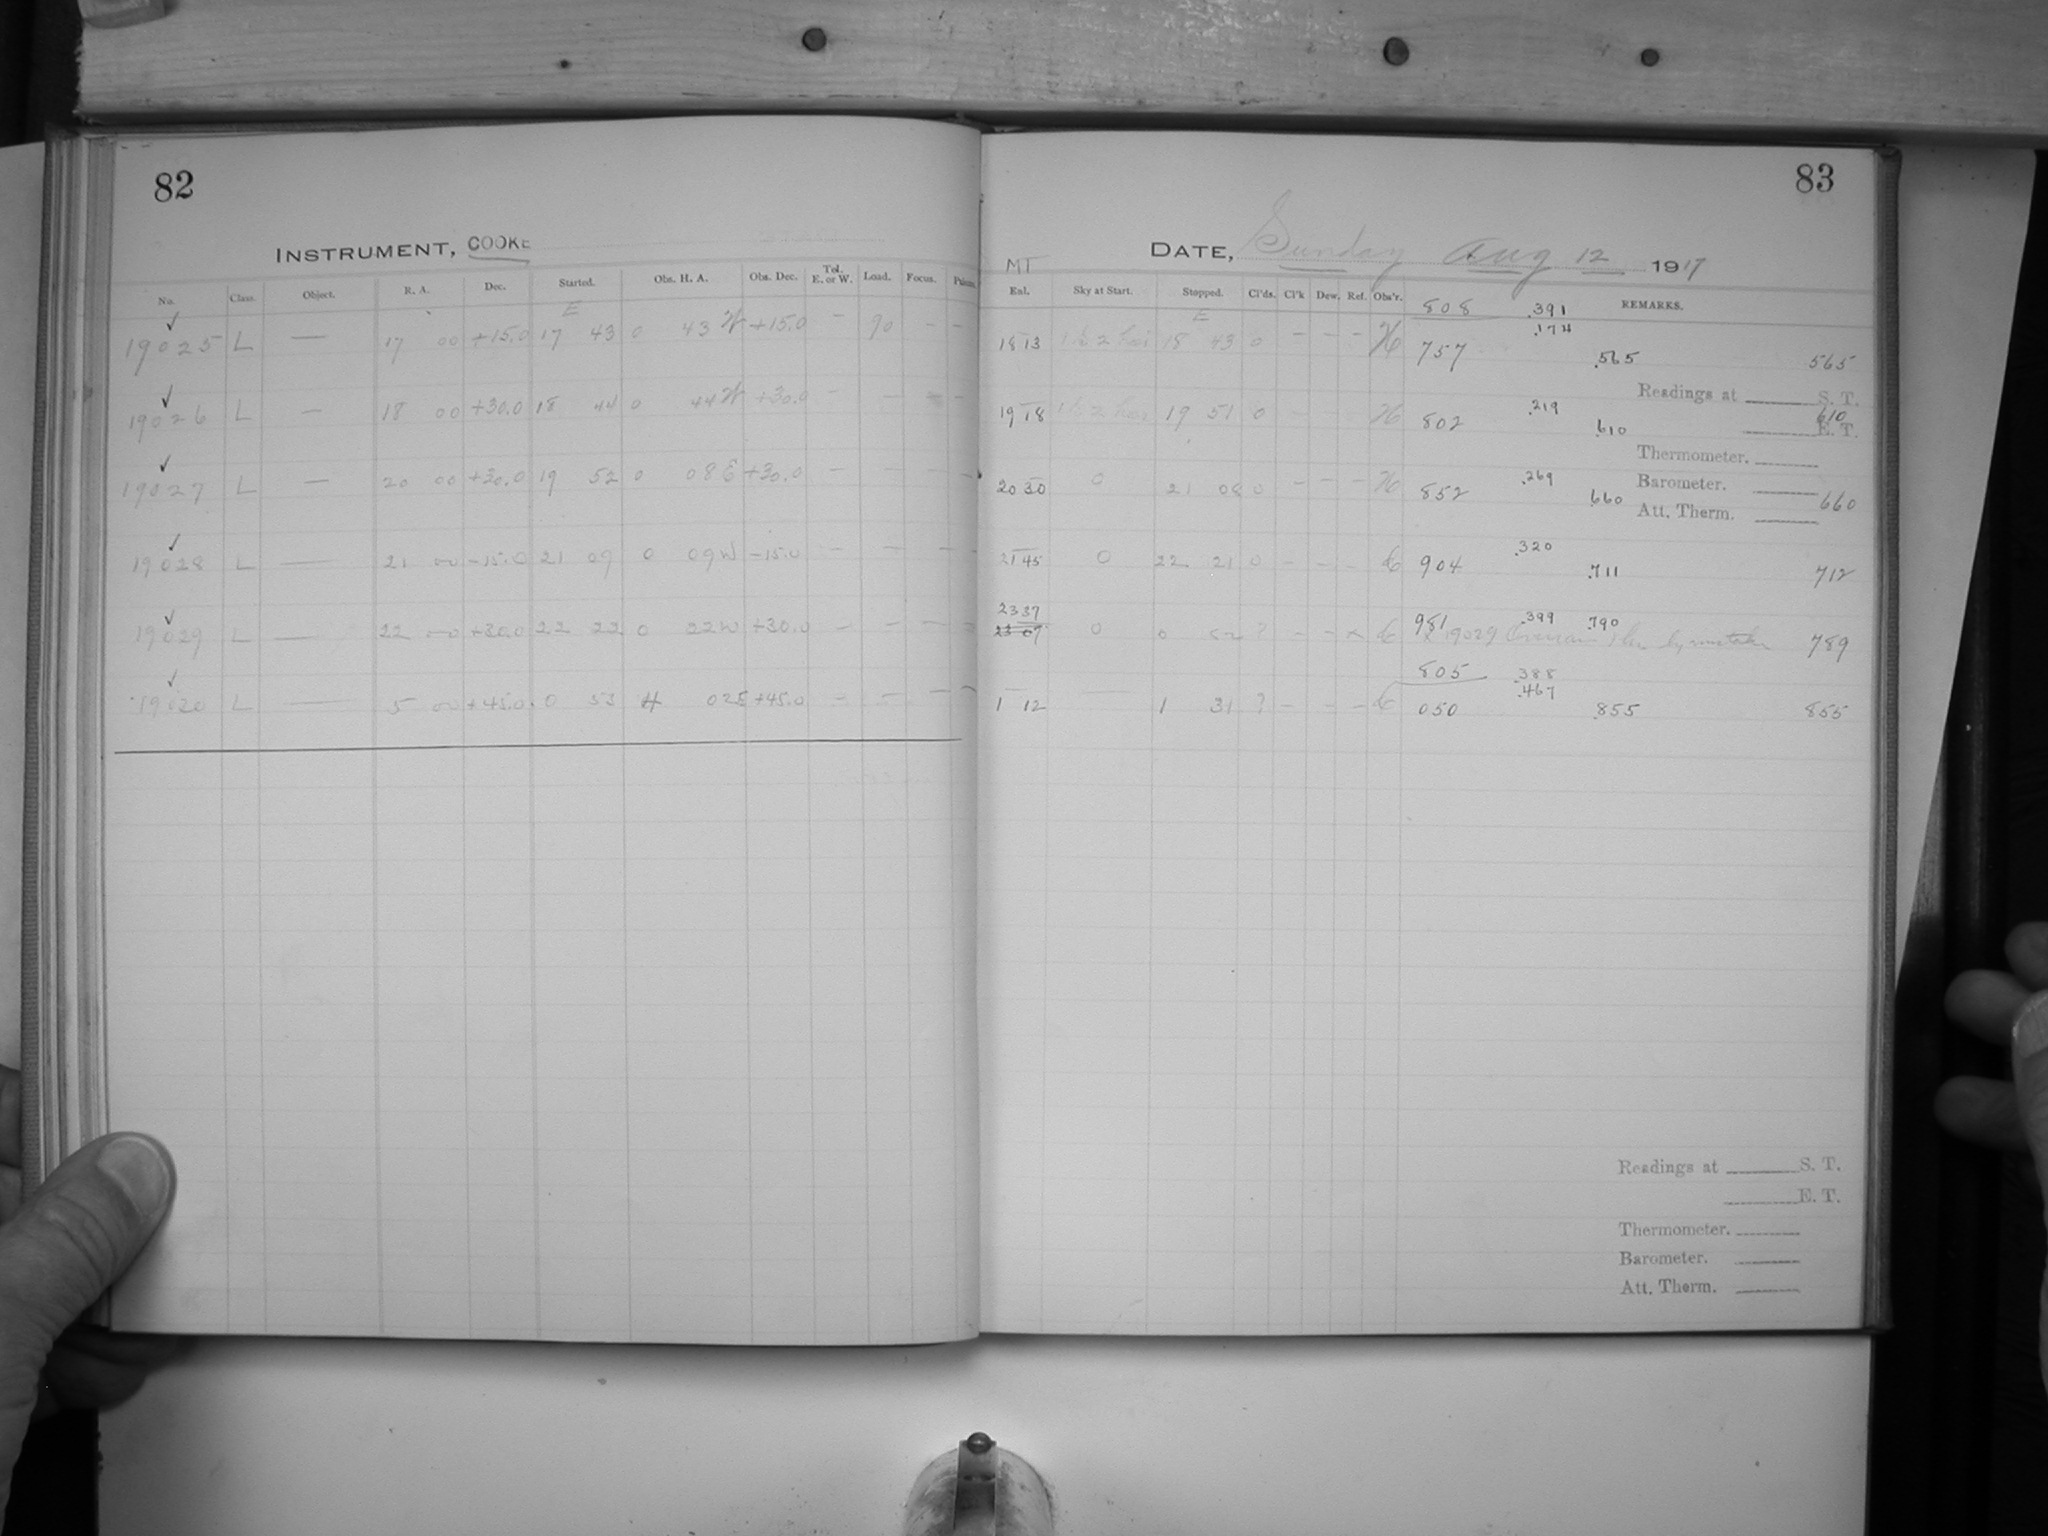 82
INSTRUMENT, COOKE
No. Class. Object. R. A. Dec. Started. Obs. H. A. Obs. Dec. Tel. E. or W. Load. Focus.
E
19025 L — 17 00 +15.0 17 43 0 43 W +15.0 – 90 – –
19026 L — 18 00 +30.0 18 44 0 44 W +30.0 – – – –
19027 L — 20 00 +30.0 19 52 0 08 E +30.0 – – – –
19028 L — 21 00 -15.0 21 09 0 09 W -15.0 – – – –
19029 L — 22 00 +30.0 22 22 0 22 W +30.0 – – –
19030 L — 5 00 +45.0 0 53 4 02 E +45.0 – – –
83
DATE, Sunday Aug 12 1917
MT
Eql. Sky at Start. Stopped. Cl'ds. Cl'k Dew. Ref. Obs'r. REMARKS.
E 808 .391
.174
18 13 18 43 0 – – – 757 .565 565
Readings at S. T.
19 18 19 51 0 – – – 802 .219 .610 610
E. T.
Thermometer.
20 30 0 21 08 0 – – – 852 .269 660 660
Barometer.
Att. Therm.
21 45 0 22 21 0 – – – 904 .320 .711 712
23 37
23 07 0 0 52 ? – – x 981 .399 .790 789
x 19029 Overran 1 hr. by mistake
805 .388
.467
1 12 — 1 31 ? – – – 050 .855 855
Readings at S. T.
E. T.
Thermometer.
Barometer.
Att. Therm.